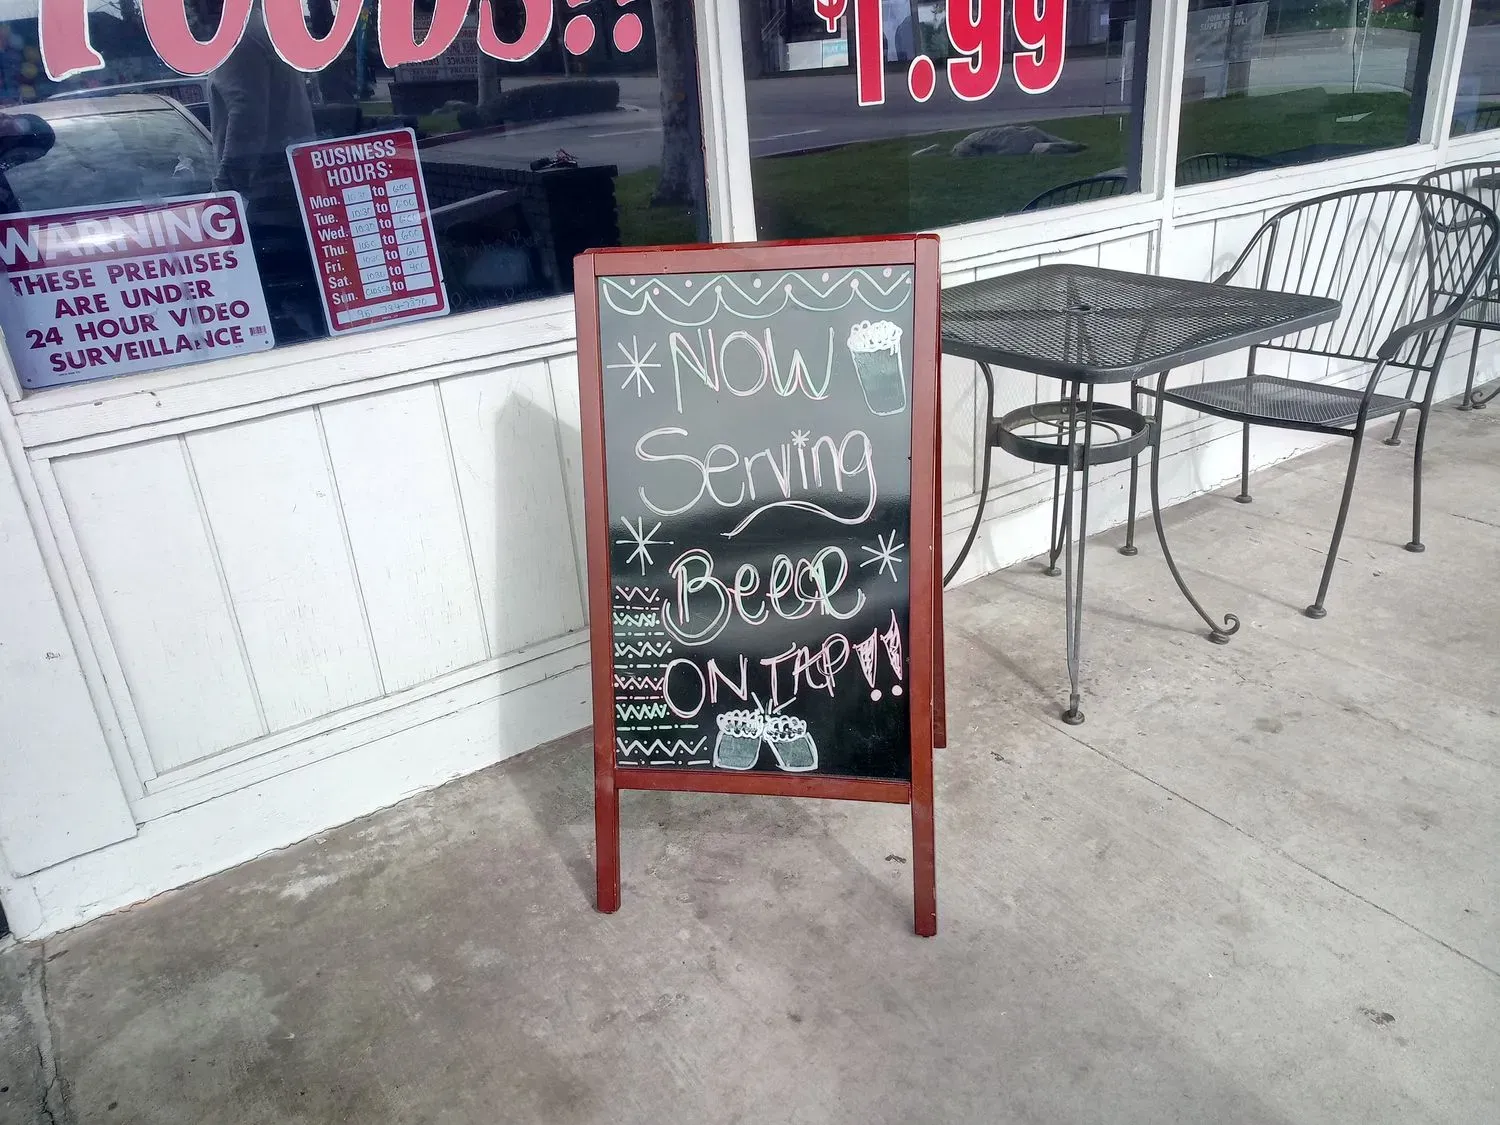 FOODS!!
$1.99
WARNING
THESE PREMISES
ARE UNDER
24 HOUR VIDEO
SURVEILLANCE
BUSINESS
HOURS:
Mon. 10:30 to 6:00
Tue. 10:30 to 6:00
Wed. 10:30 to 6:00
Thu. to 6:00
Fri. to
Sat. to
Sun. CLOSED to
NOW
Serving
BEEER
ON TAP!!